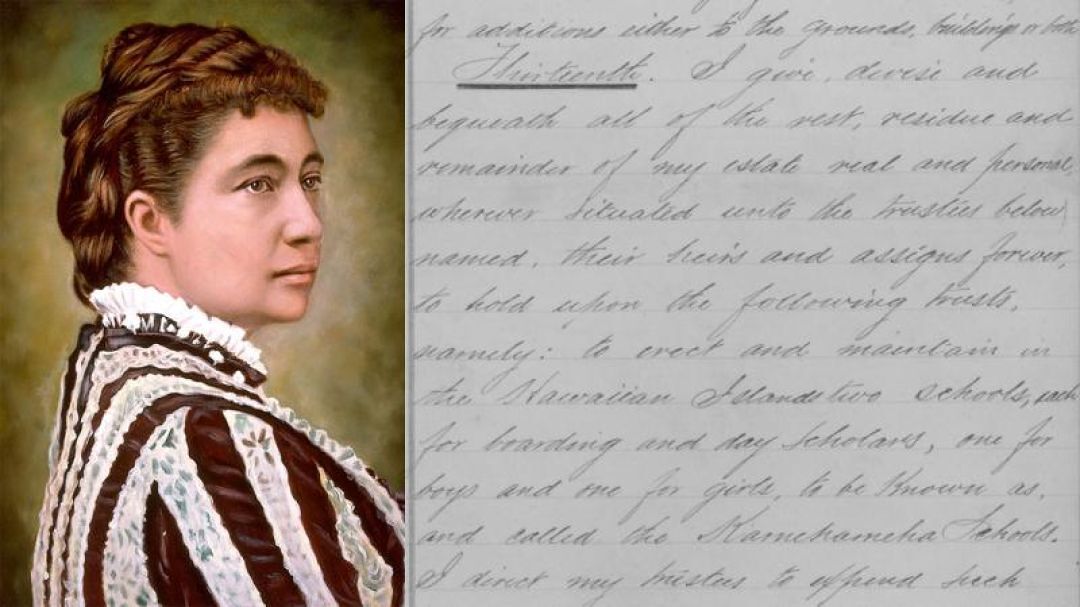 for additions either to the grounds, buildings or both
Thirteenth. I give, devise and
bequeath all of the rest, residue and
remainder of my estate real and personal,
wherever situated unto the trustees below
named, their heirs and assigns forever,
to hold upon the following trusts,
namely: to erect and maintain in
the Hawaiian Islands two schools, each
for boarding and day scholars, one for
boys and one for girls, to be known as,
and called the Kamehameha Schools.
I direct my trustees to expend such